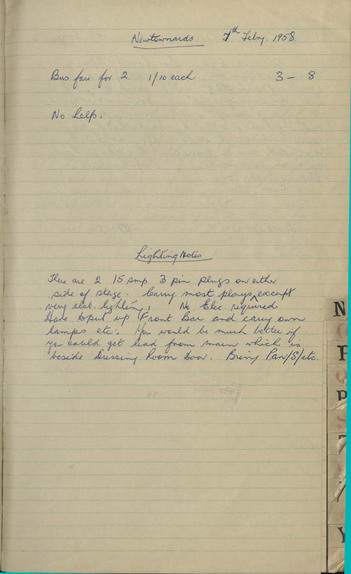 Newtownards 7th Feby. 1958
Bus fare for 2 1/10 each 3 - 8
No help.
Lighting Notes
There are 2 15 amp 3 pin plugs on either
side of stage. Carry most plays, except
very elab. lighting, No Elec required.
Have to put up Front Bar and carry own
lamps etc. You would be much better if
you could get lead from main which is
beside Dressing Room door. Bring Pan/S/etc.
N
P
P
7
Y